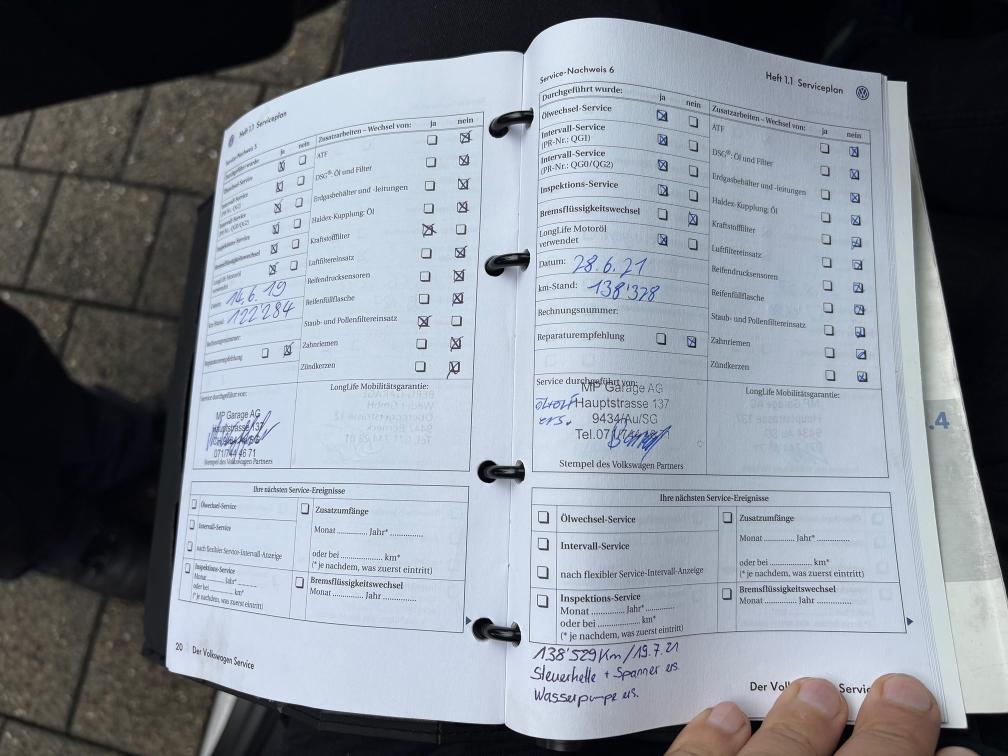 Heft 1.1 Serviceplan
Service-Nachweis 5
Durchgeführt wurde: ja nein
Ölwechsel-Service
Intervall-Service
(PR-Nr.: QG1)
Intervall-Service
(PR-Nr.: QG0/QG2)
Inspektions-Service
Bremsflüssigkeitswechsel
LongLife Motoröl
verwendet
Datum: 14.6.19
km-Stand: 122'284
Rechnungsnummer:
Reparaturempfehlung
Zusatzarbeiten – Wechsel von: ja nein
ATF
DSG®: Öl und Filter
Erdgasbehälter und -leitungen
Haldex-Kupplung: Öl
Kraftstofffilter
Luftfiltereinsatz
Reifendrucksensoren
Reifenfüllflasche
Staub- und Pollenfiltereinsatz
Zahnriemen
Zündkerzen
Service durchgeführt von:
MP Garage AG
Hauptstrasse 137
CH-9434 Au/SG
071/744 46 71
LongLife Mobilitätsgarantie:
Ihre nächsten Service-Ereignisse
Ölwechsel-Service
Intervall-Service
nach flexibler Service-Intervall-Anzeige
Inspektions-Service
Monat ........... Jahr* ...........
oder bei ............ km*
(* je nachdem, was zuerst eintritt)
Zusatzumfänge
Monat ............ Jahr* ............
oder bei ............... km*
(* je nachdem, was zuerst eintritt)
Bremsflüssigkeitswechsel
Monat ............ Jahr ..............
20 Der Volkswagen Service
Service-Nachweis 6
Heft 1.1 Serviceplan
Durchgeführt wurde: ja nein
Ölwechsel-Service
Intervall-Service
(PR-Nr.: QG1)
Intervall-Service
(PR-Nr.: QG0/QG2)
Inspektions-Service
Bremsflüssigkeitswechsel
LongLife Motoröl
verwendet
Datum: 28.6.21
km-Stand: 138'328
Rechnungsnummer:
Reparaturempfehlung
Zusatzarbeiten – Wechsel von: ja nein
ATF
DSG®: Öl und Filter
Erdgasbehälter und -leitungen
Haldex-Kupplung: Öl
Kraftstofffilter
Luftfiltereinsatz
Reifendrucksensoren
Reifenfüllflasche
Staub- und Pollenfiltereinsatz
Zahnriemen
Zündkerzen
Service durchgeführt von:
MP Garage AG
Hauptstrasse 137
9434/Au/SG
Tel.071/744
ers.
Stempel des Volkswagen Partners
LongLife Mobilitätsgarantie:
Ihre nächsten Service-Ereignisse
Ölwechsel-Service
Intervall-Service
nach flexibler Service-Intervall-Anzeige
Inspektions-Service
Monat ............ Jahr* ............
oder bei ............... km*
(* je nachdem, was zuerst eintritt)
Zusatzumfänge
Monat ............ Jahr* ............
oder bei ............... km*
(* je nachdem, was zuerst eintritt)
Bremsflüssigkeitswechsel
Monat ............ Jahr ..............
138'529 Km / 19.7.21
Steuerkette + Spanner ers.
Wasserpumpe ers.
Der Volkswagen Service
.4